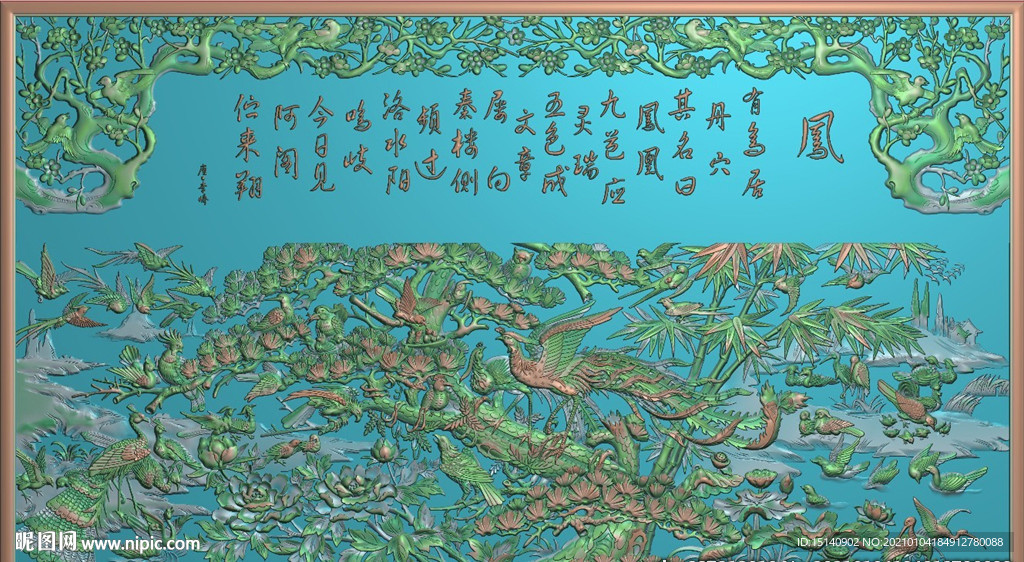 鳳
有鸟居
丹穴
其名曰
鳳凰
九苞应
灵瑞
五色成
文章
屡向
秦楼侧
频过
洛水阳
鸣岐
今日见
阿阁
伫来翔
昵图网 www.nipic.com
ID:15140902 NO:20210104184912780088